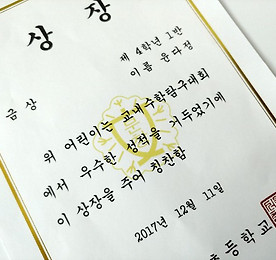 상 장
제 4학년 1반
이름 윤다정
금상
위 어린이는 교내수학탐구대회
에서 우수한 성적을 거두었기에
이 상장을 주어 칭찬함
2017년 12월 11일
초등학교